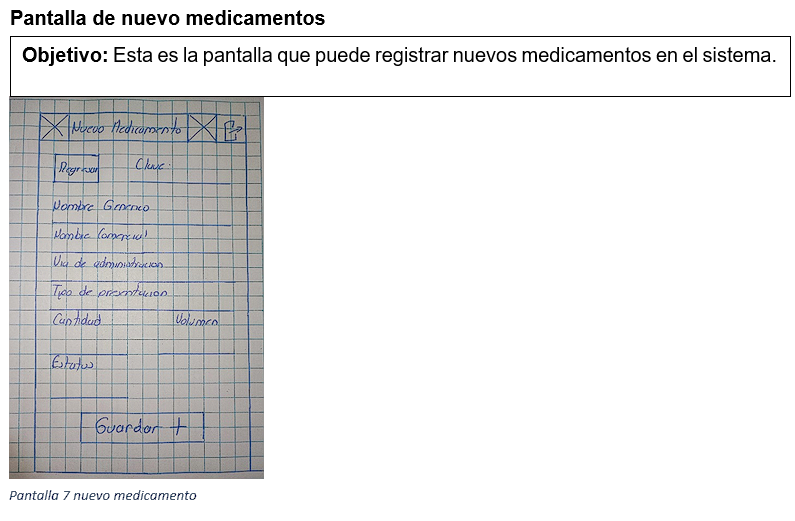 Pantalla de nuevo medicamentos
Objetivo: Esta es la pantalla que puede registrar nuevos medicamentos en el sistema.
Nuevo Medicamento
Regresar Clave:
Nombre Generico
Nombre Comercial
Via de administracion
Tipo de presentacion
Cantidad Volumen
Estatus
Guardar +
Pantalla 7 nuevo medicamento